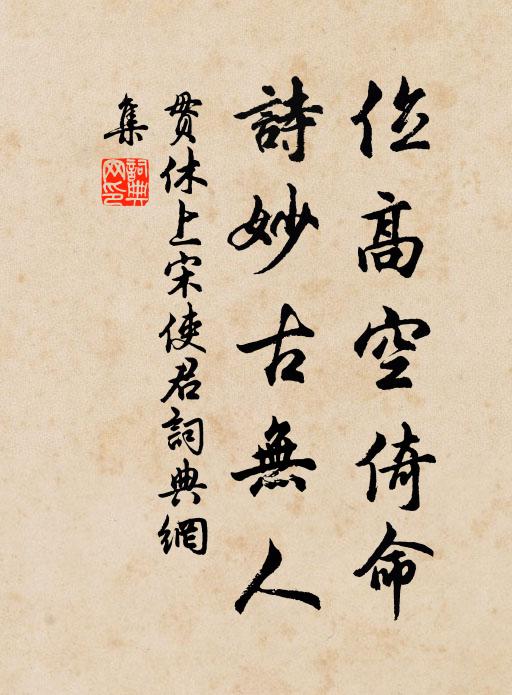 位高空倚命
詩妙古無人
貫休上宋使君詞典網
集
詞典
网印